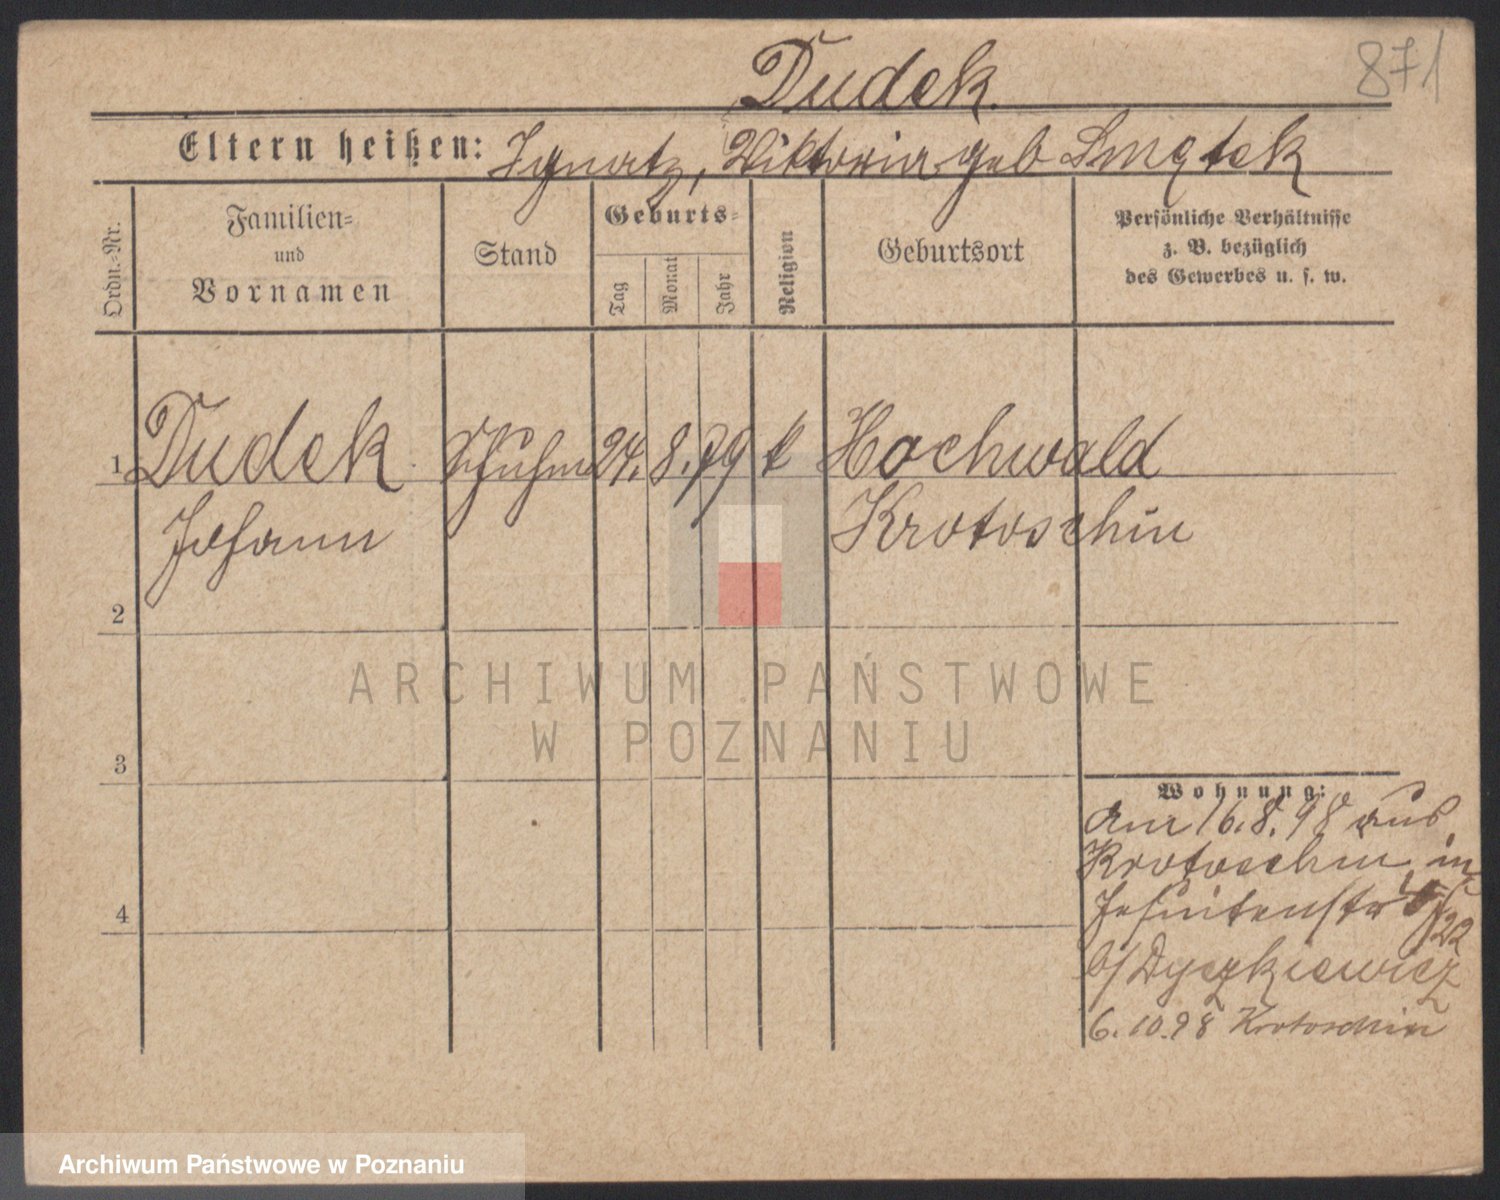 871
Dudek.
Eltern heißen: Ignatz, Wiktoria geb Smętek
Ordn.-Nr.
Familien-
und
Vornamen
Stand
Geburts-
Tag
Monat
Jahr
Religion
Geburtsort
Persönliche Verhältnisse
z. B. bezüglich
des Gewerbes u. s. w.
1 Dudek Schuhm 24. 8. 79 k Hochwald
Johann Krotoschin
2
ARCHIWUM PAŃSTWOWE
W POZNANIU
3
Wohnung:
16.8.98 aus
Krotoschin in
Jesuitenstr
22
b/ Dyszkiewicz
6.10.98 Krotoschin
4
Archiwum Państwowe w Poznaniu